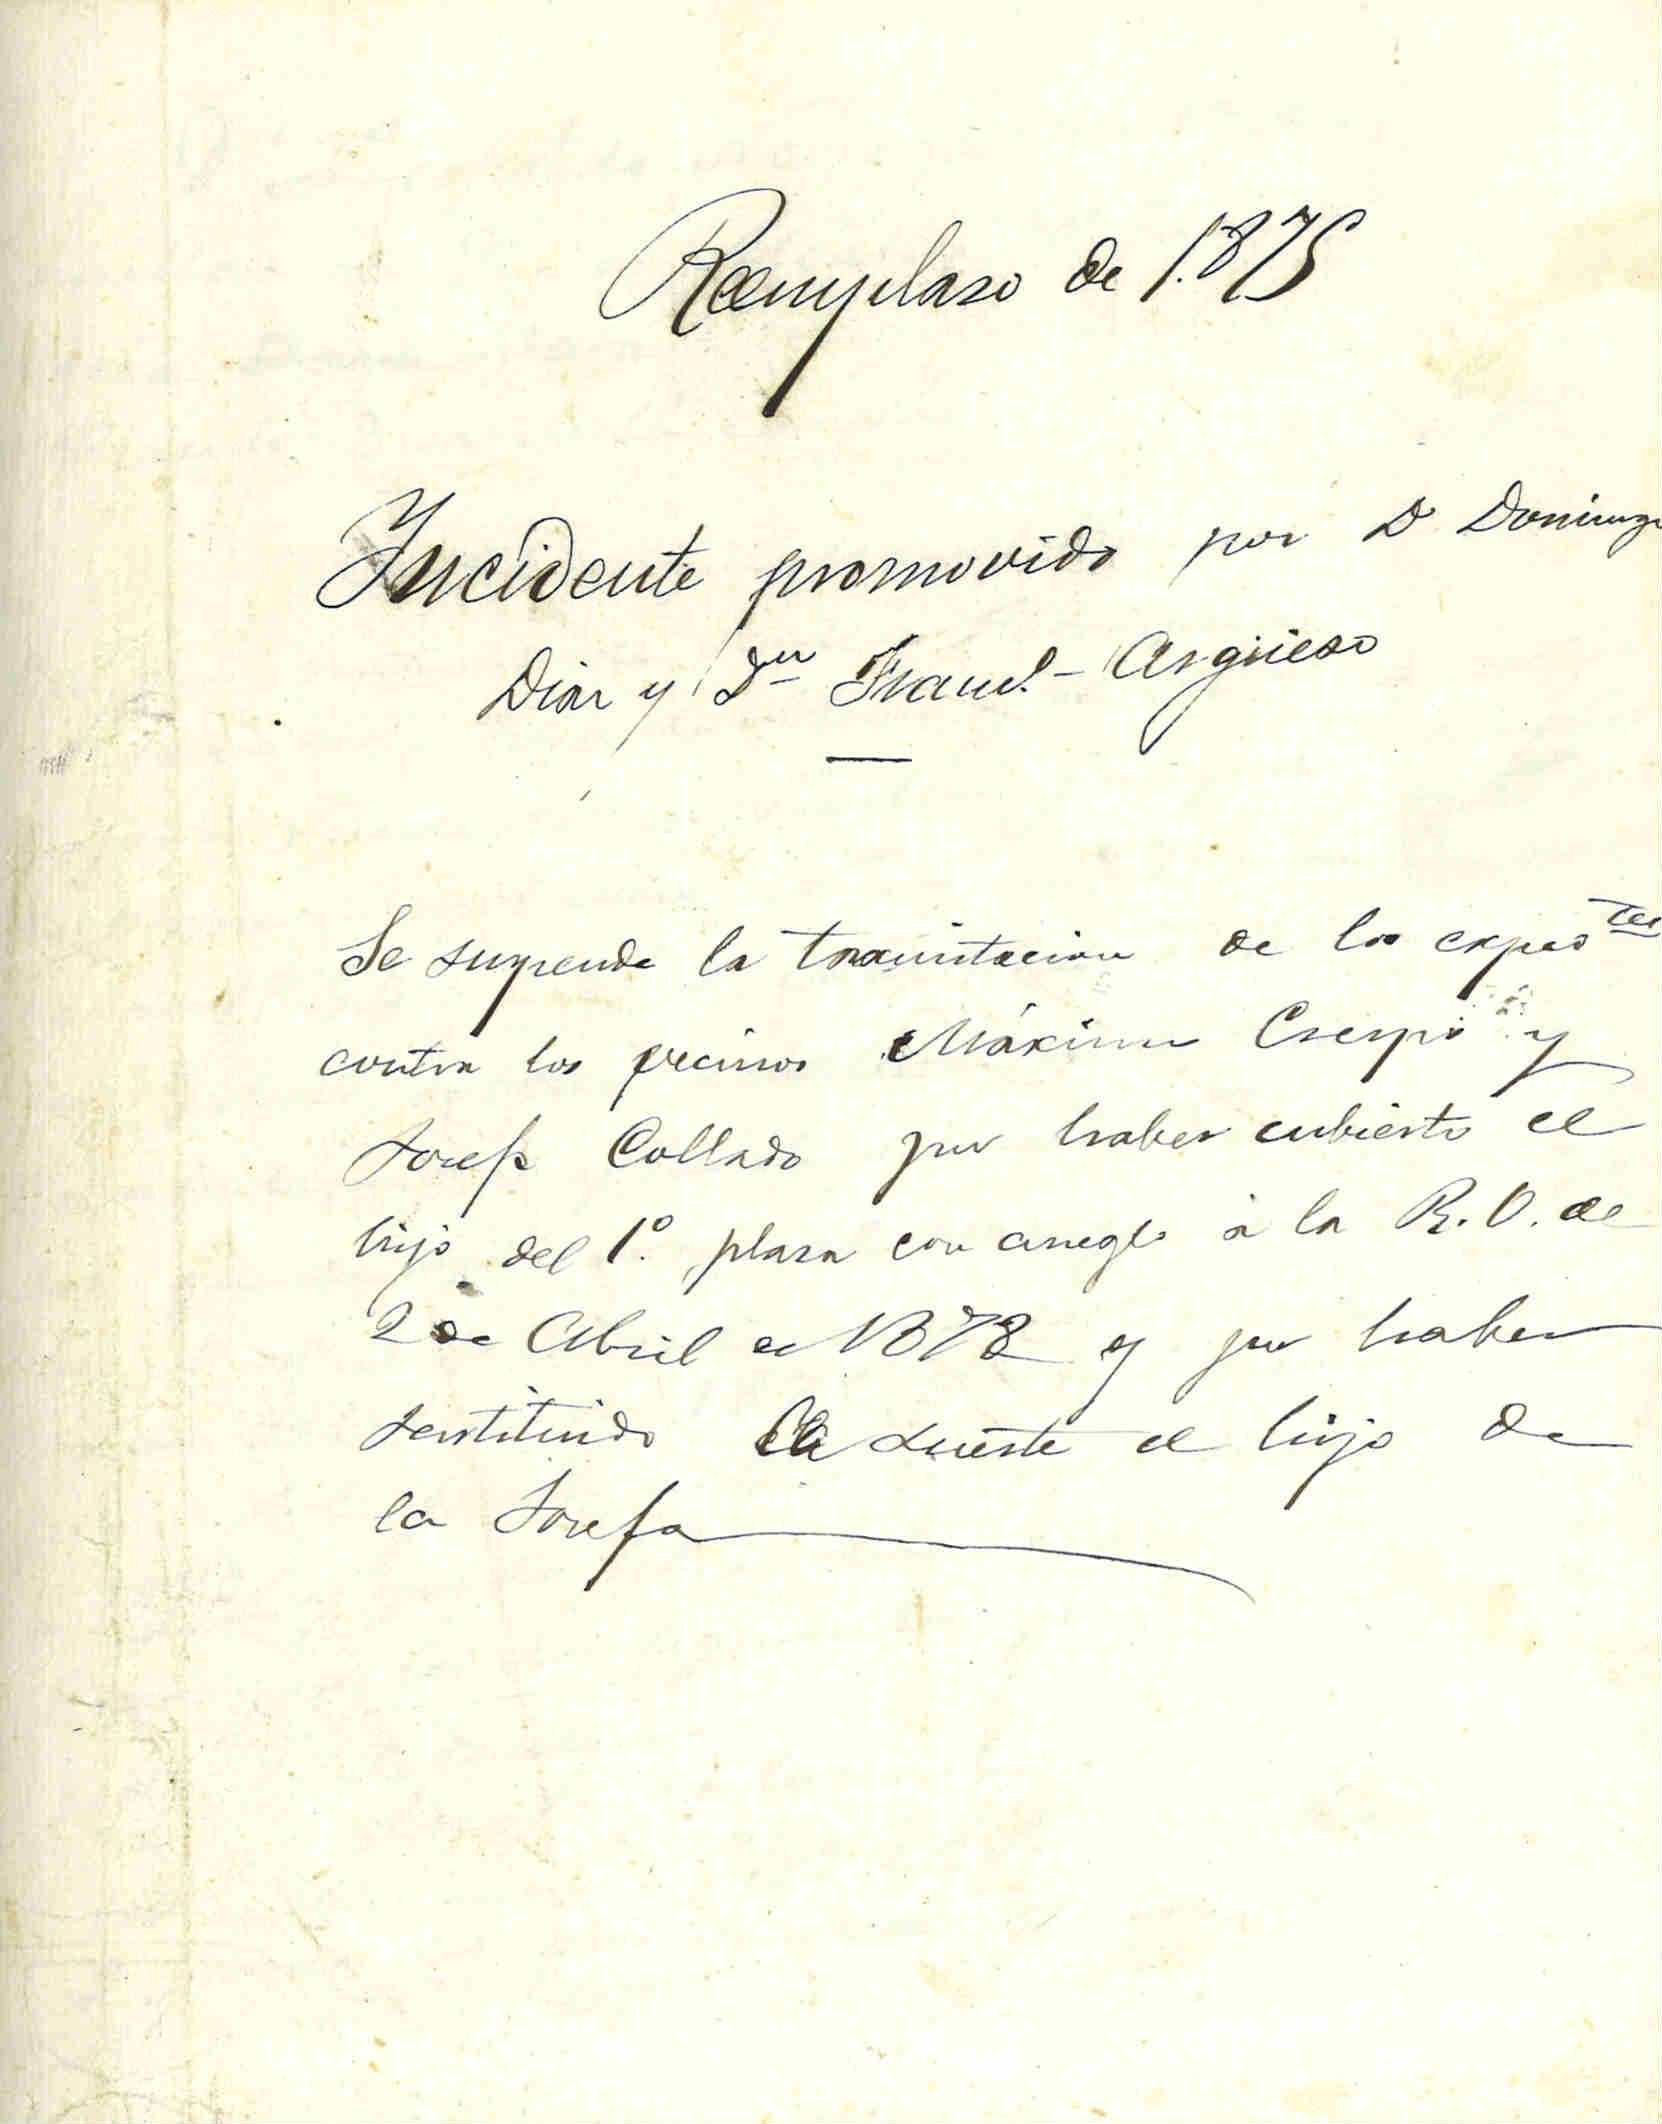 Reemplaso de 1.875
Incidente promovido por D Domingo
Diaz y Dn Franco. Argüeso
Se suspende la tramitacion de los expedtes
contra los vecinos Máximo Crespo y
Josefa Collado por haber cubierto el
hijo del 1º. plaza con arreglo á la R. O. de
2 de Abril de 1878 y por haber
sustituido la suerte el hijo de
la Josefa